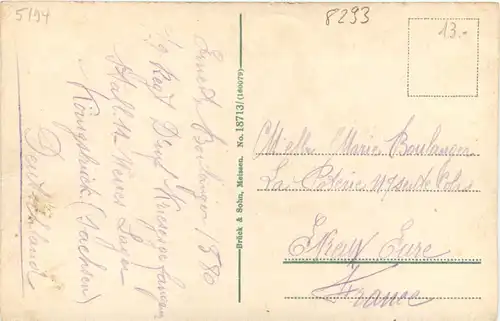 5194
8293
13.-
Ernest Boulanger 1580
Regt Kriegsgefangen
Stall Neues Lager
Königsbrück (Sachsen)
Deutschland
Brück & Sohn, Meissen. No. 18713/(180079)
Melle Marie Boulanger
La Poterie
Eure
France